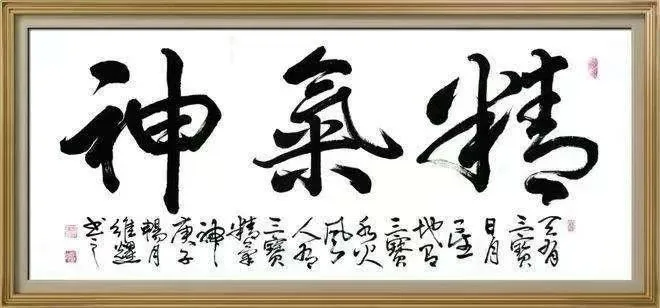 精氣神
天有
三寶
日月
星
地有
三寶
水火
風
人有
三寶
精氣
神
庚子
暢月
維
书之